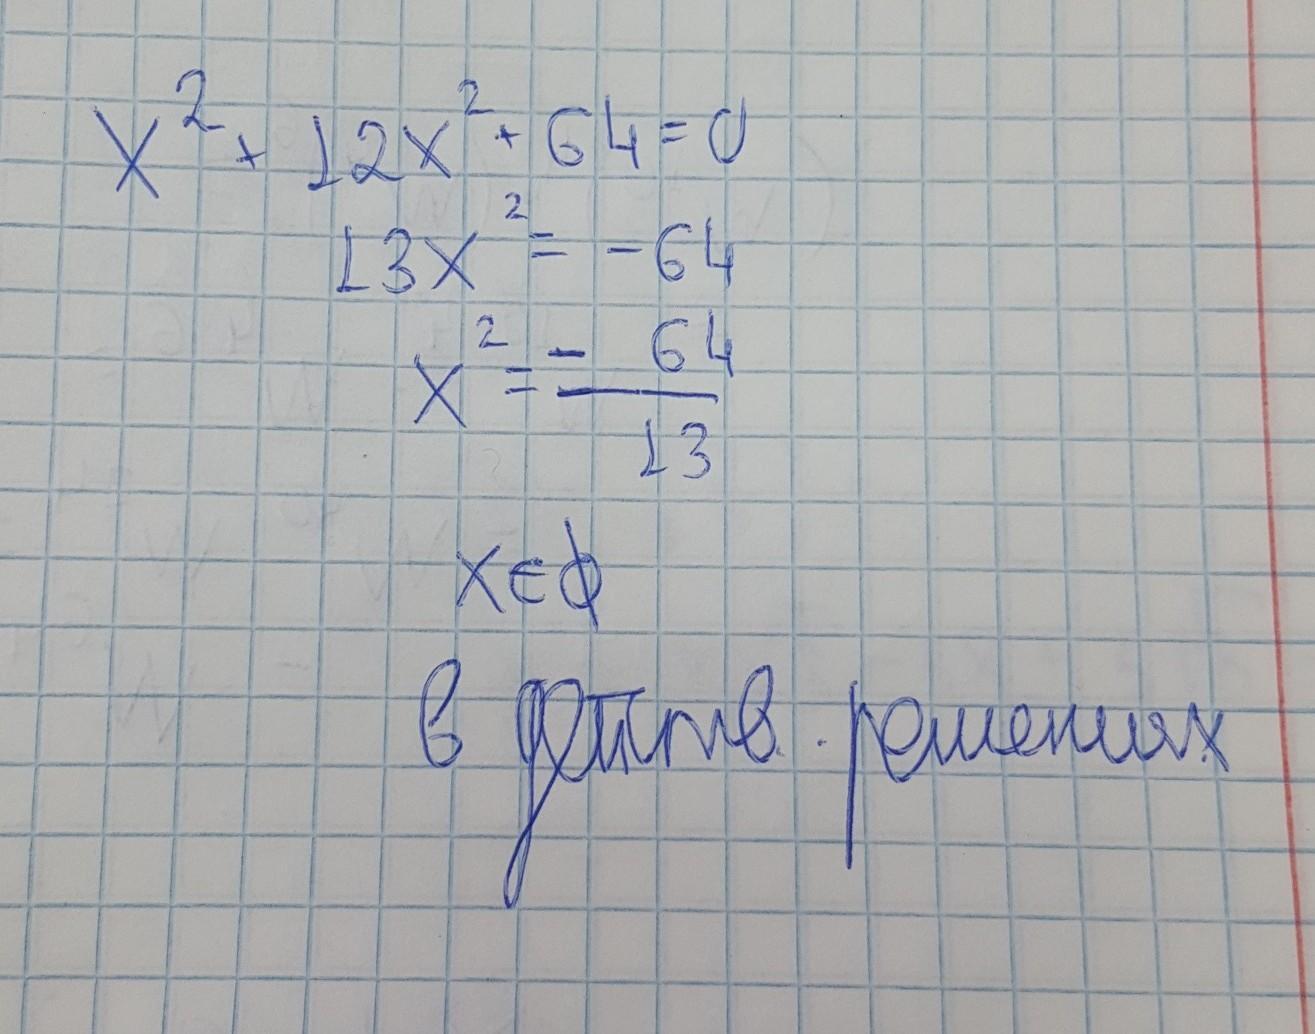 x² + 12x² + 64 = 0
13x² = -64
x² = - 64
13
x ∈ ϕ
в действ. решениях